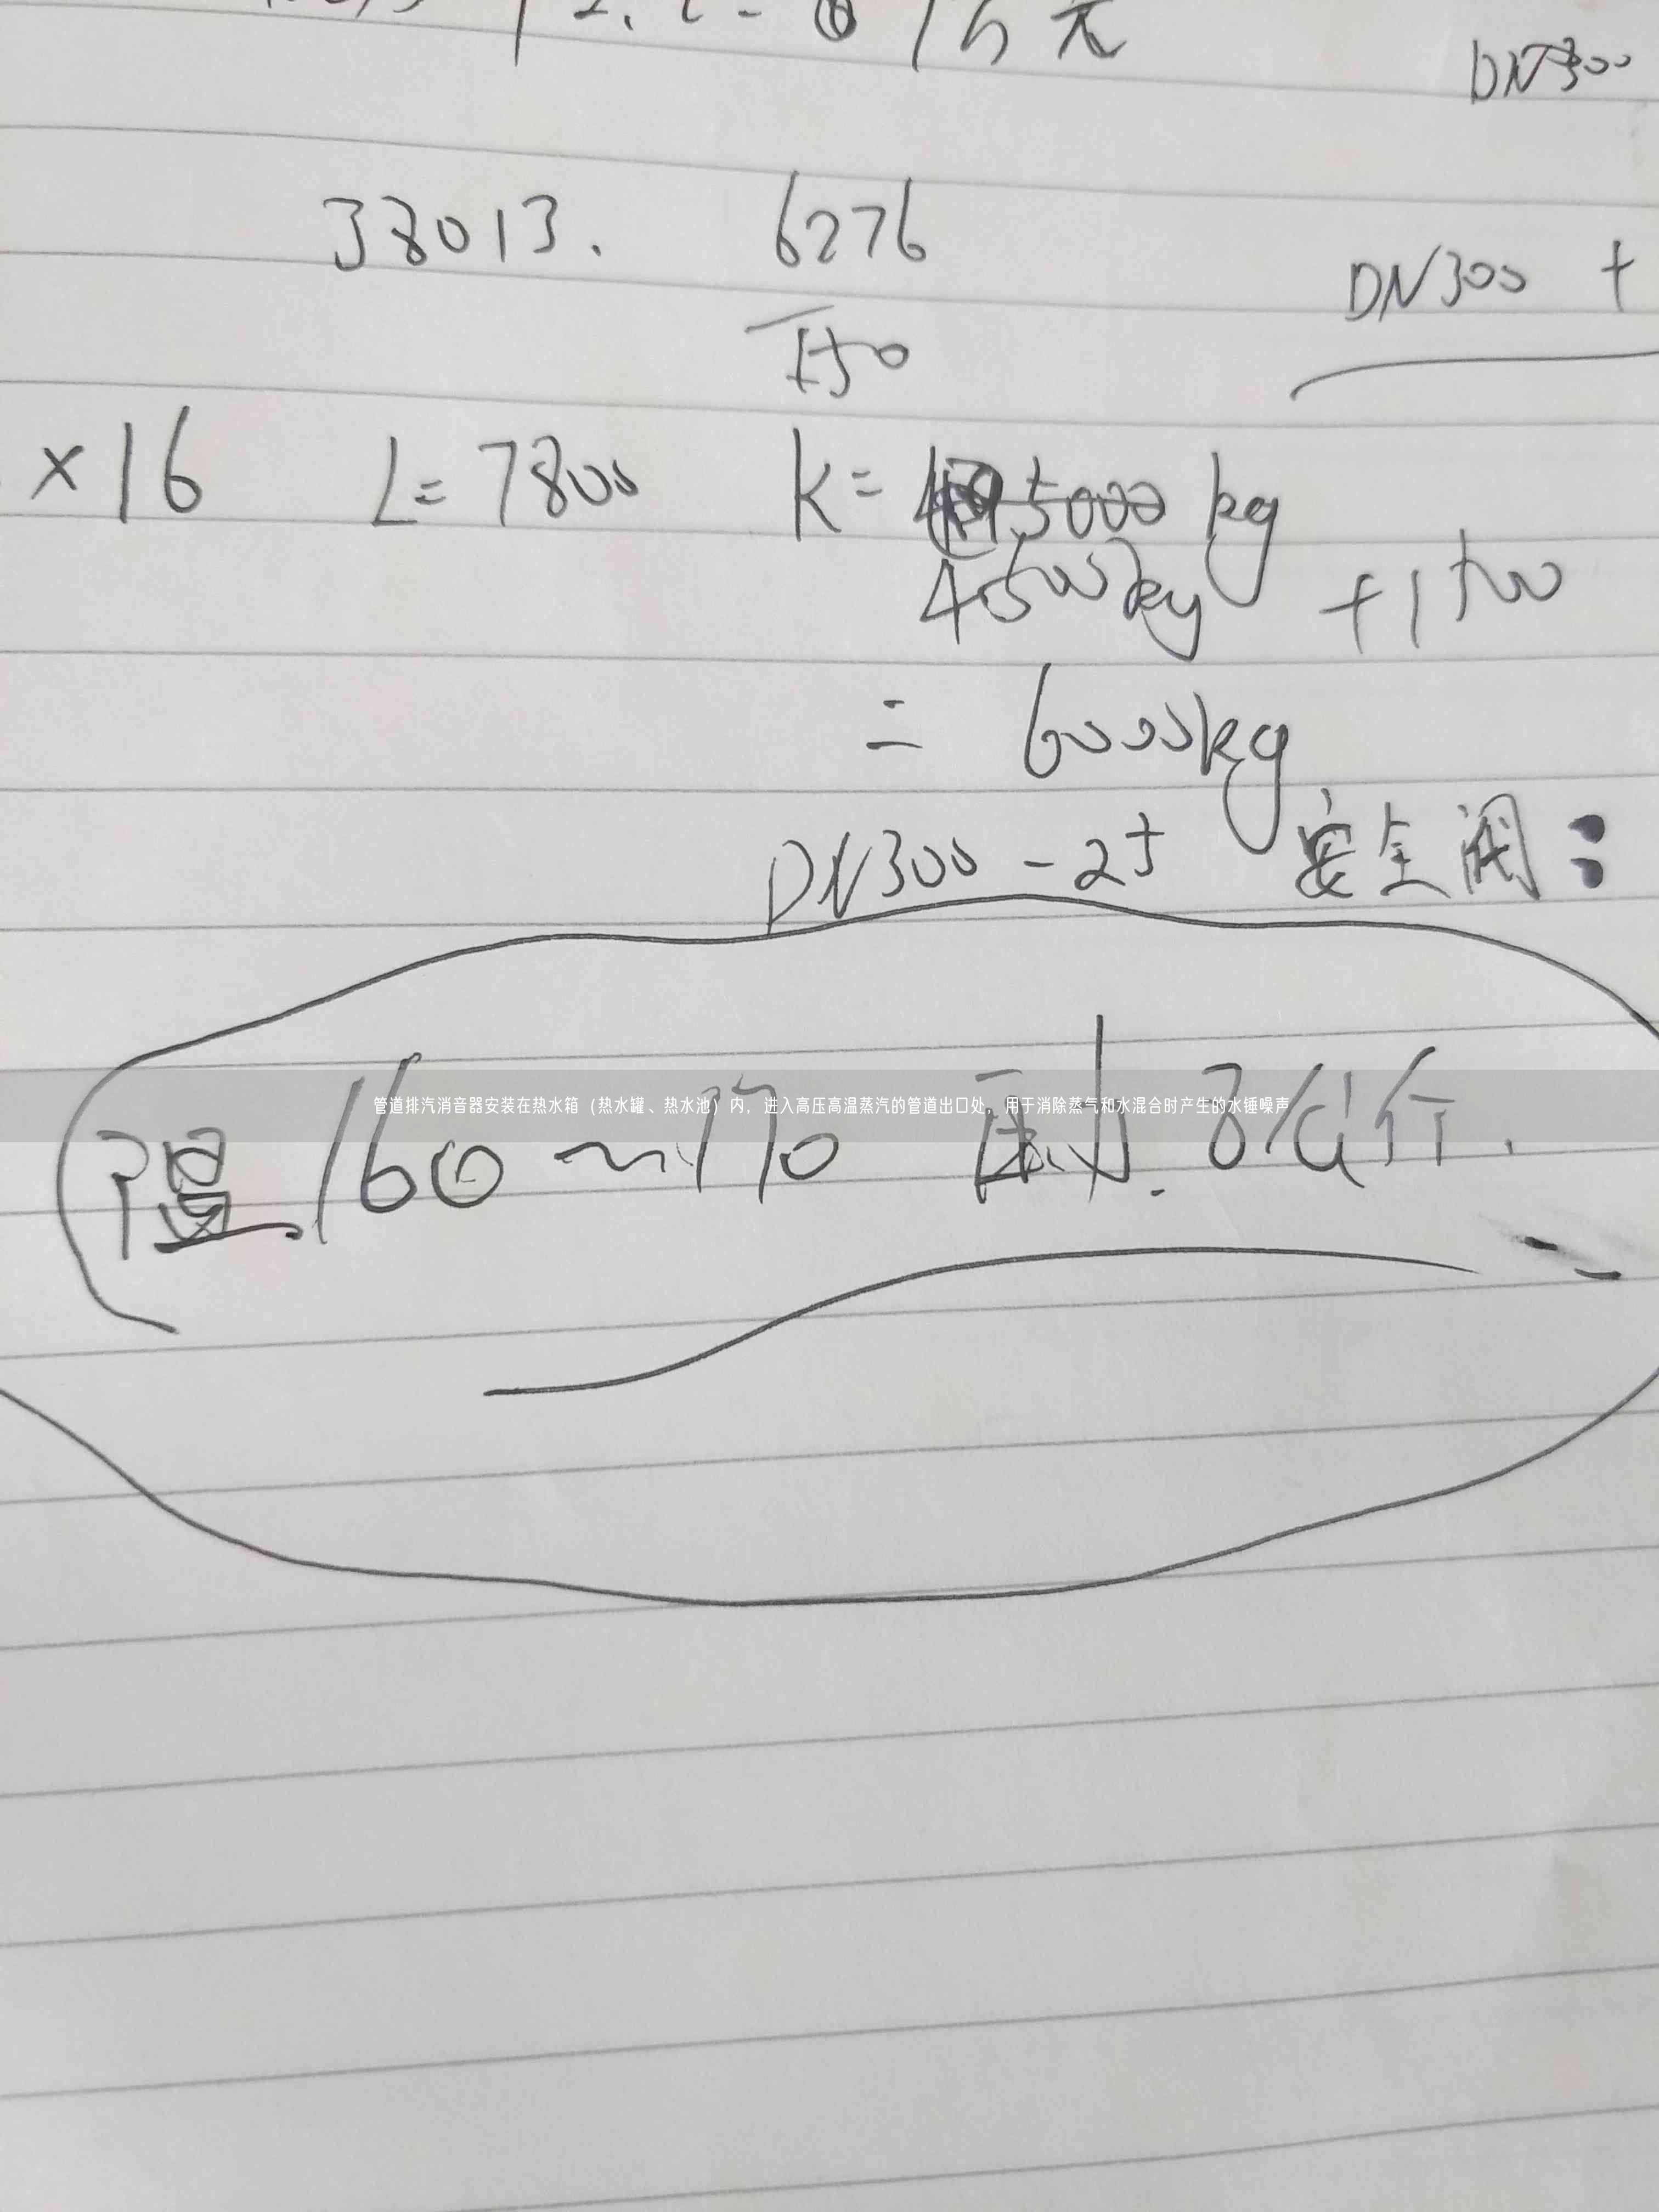 万元
DN300
38013. 6276
DN300 +
150
×16 L=7800 K= 5000 kg
4500kg +1500
= 6000kg
DN300-25 安全阀:
管道排汽消音器安装在热水箱（热水罐、热水池）内，进入高压高温蒸汽的管道出口处，用于消除蒸气和水混合时产生的水锤噪声
温160~170 压力.8公斤.